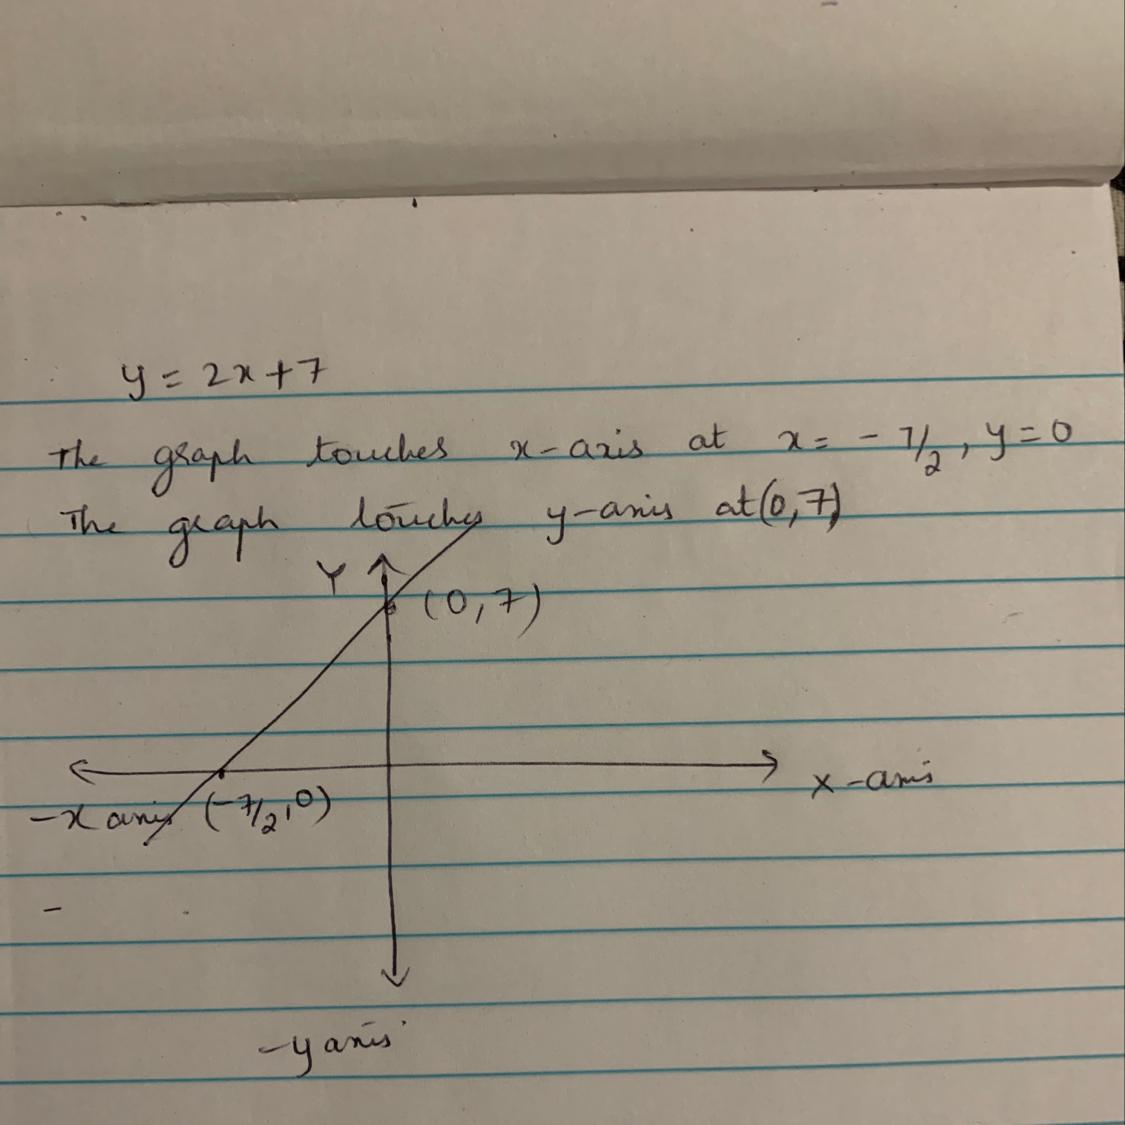 y = 2x+7
The graph touches x-axis at x = - 7/2, y=0
The graph touches y-axis at (0,7)
Y
(0,7)
x-axis
-x axis (-7/2,0)
-y axis